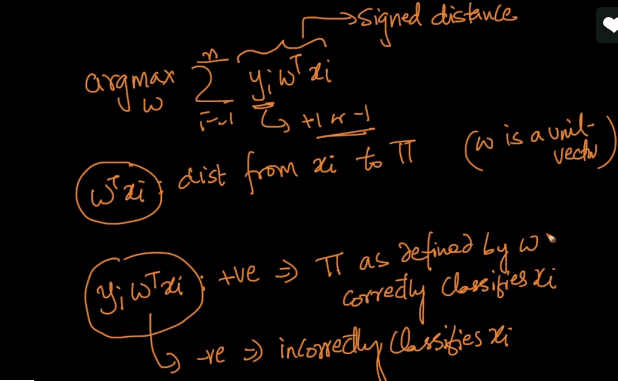 → signed distance
argmax_w Σ_{i=1}^{n} y_i w^T x_i
↳ +1 or -1
w^T x_i : dist from x_i to π (w is a unit-vector)
y_i w^T x_i : +ve ⇒ π as defined by w
correctly classifies x_i
↳ -ve ⇒ incorrectly classifies x_i